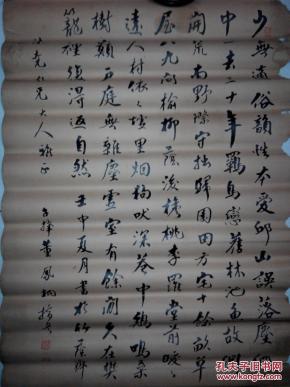 少無適俗韻性本愛邱山誤落塵
中去二十年羈鳥戀舊林池魚故淵
開荒南野際守拙歸園田方宅十餘畝草
屋八九間榆柳蔭後檐桃李羅堂前曖曖
遠人村依依墟里烟狗吠深巷中鷄鳴桑
樹顛戶庭無雜塵虛室有餘閒久在樊
籠裡復得返自然 壬申夏月書於竹
仁兄大人雅正 董鳳桐